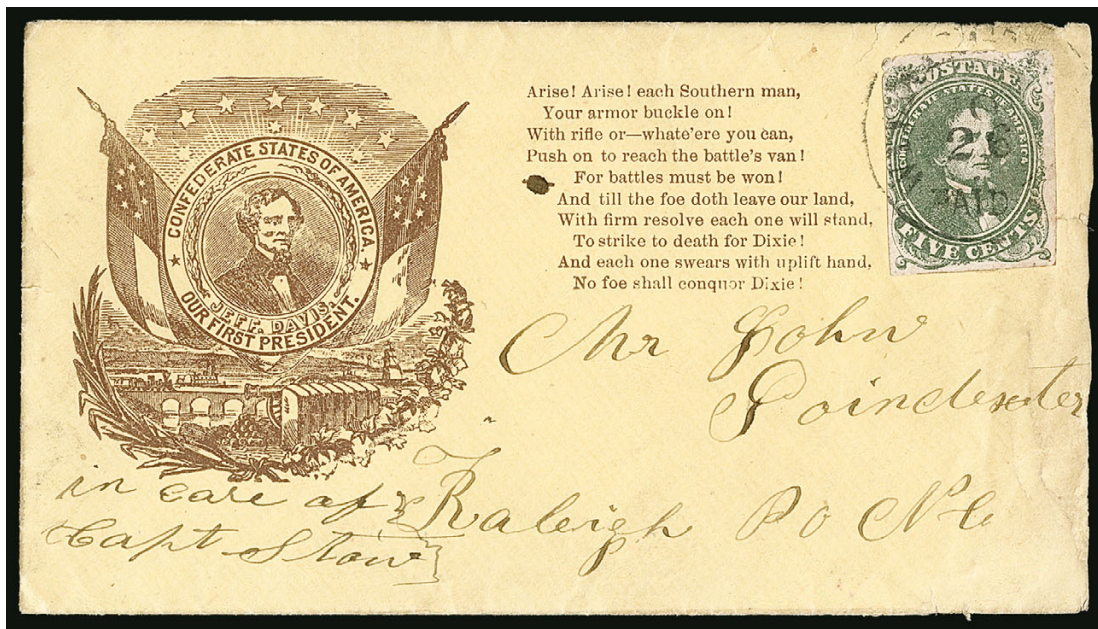 CONFEDERATE STATES OF AMERICA.
JEFF. DAVIS.
OUR FIRST PRESIDENT.
Arise! Arise! each Southern man,
Your armor buckle on!
With rifle or—whate'ere you can,
Push on to reach the battle's van!
For battles must be won!
And till the foe doth leave our land,
With firm resolve each one will stand,
To strike to death for Dixie!
And each one swears with uplift hand,
No foe shall conquor Dixie!
POSTAGE
CONFEDERATE STATES OF AMERICA
FIVE CENTS
PAID
Mr John
Poindexter
Raleigh Po N.C.
in care of
Capt Stow